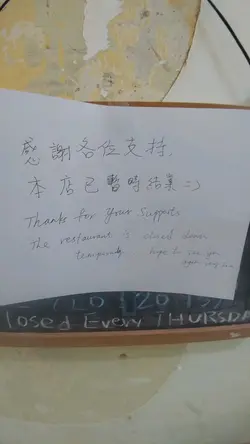 感謝各位支持,
本店已暫時結業=)
Thanks for Your Supports
The restaurant is closed down
temporarily hope to see you
again very soon
Closed Every THURSDA